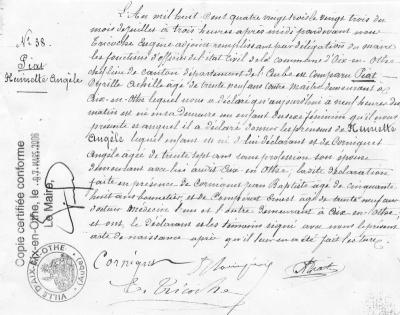 L'An mil huit cent quatre vingt trois le vingt trois du
mois de juillet à trois heures après midi pardevant nous
Tricoche Eugène adjoint remplissant par délégation du maire
les fonctions d'officier de l'état civil de la commune d'Aix-en-Othe
chef lieu de canton département de l'Aube est comparu Piat
Achille âgé de trente neuf ans demeurant à
Aix-en-Othe lequel nous a déclaré qu'aujourd'hui à neuf heures du
matin est né en sa demeure un enfant du sexe féminin qu'il nous
présente et auquel il a déclaré donner les prénoms de Henriette
Angèle lequel enfant est né de lui déclarant et de Cornignet
Angèle âgée de trente sept ans sans profession son épouse
demeurant avec lui audit Aix en Othe, la dite déclaration
faite en présence de Jean Baptiste âgé de cinquante
huit ans bonnetier et de Ernest âgé de trente neuf ans
docteur médecin l'un et l'autre demeurant à Aix-en-Othe,
et ont, le déclarant et les témoins signé avec nous le présent
acte de naissance après qu'il leur en a été fait lecture.
N° 38.
Piat
Henriette Angèle
Copie certifiée conforme
Aix-en-Othe, le 07 MARS 2006
Le Maire,
VILLE D'AIX-EN-OTHE (Aube)
E. Tricoche
Piat